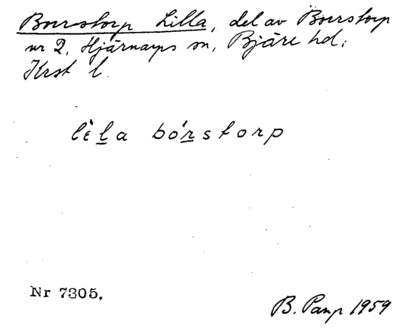 Boarstorp Lilla, del av Boarstorp
nr 2, Hjärnarps sn, Bjäre hd,
Krst l.
lìl̲a bór̲storp
Nr 7305.
B. Pamp 1959